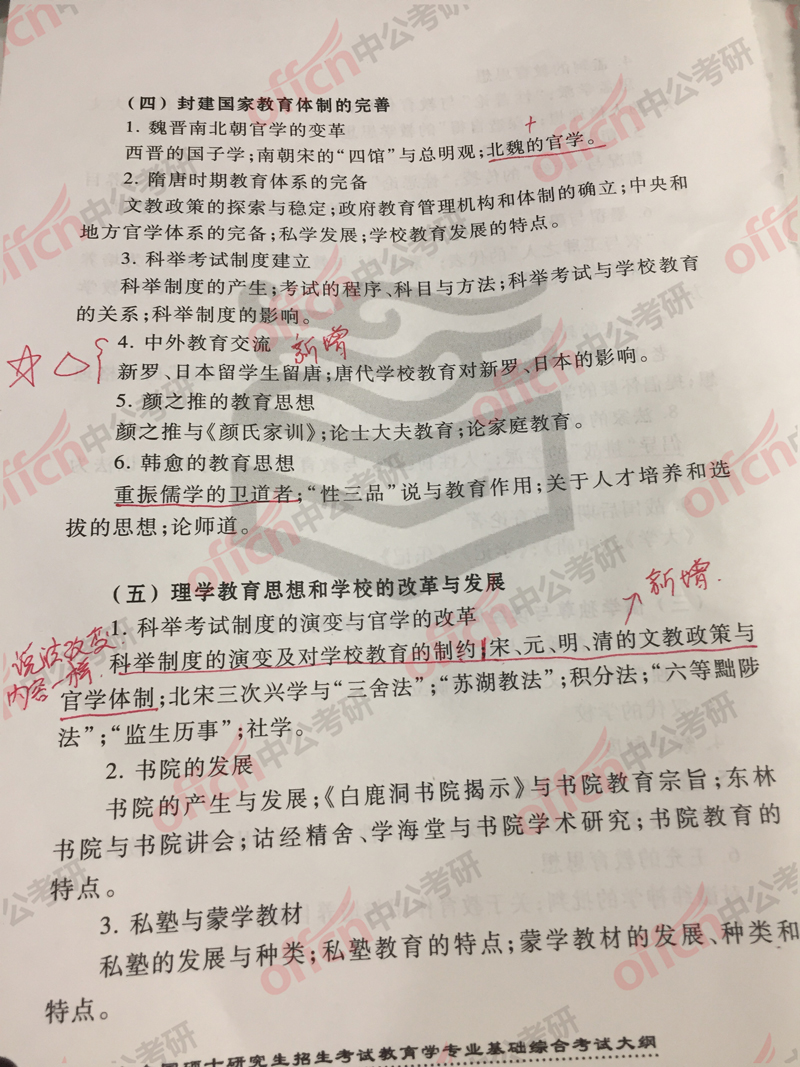 （四）封建国家教育体制的完善
1. 魏晋南北朝官学的变革
+
西晋的国子学；南朝宋的“四馆”与总明观；北魏的官学。
2. 隋唐时期教育体系的完备
文教政策的探索与稳定；政府教育管理机构和体制的确立；中央和
地方官学体系的完备；私学发展；学校教育发展的特点。
3. 科举考试制度建立
科举制度的产生；考试的程序、科目与方法；科举考试与学校教育
的关系；科举制度的影响。
4. 中外教育交流 新增
新罗、日本留学生留唐；唐代学校教育对新罗、日本的影响。
5. 颜之推的教育思想
颜之推与《颜氏家训》；论士大夫教育；论家庭教育。
6. 韩愈的教育思想
重振儒学的卫道者；“性三品”说与教育作用；关于人才培养和选
拔的思想；论师道。
（五）理学教育思想和学校的改革与发展
新增
1. 科举考试制度的演变与官学的改革
说法改变
内容一样
科举制度的演变及对学校教育的制约；宋、元、明、清的文教政策与
官学体制；北宋三次兴学与“三舍法”；“苏湖教法”；积分法；“六等黜陟
法”；“监生历事”；社学。
2. 书院的发展
书院的产生与发展；《白鹿洞书院揭示》与书院教育宗旨；东林
书院与书院讲会；诂经精舍、学海堂与书院学术研究；书院教育的
特点。
3. 私塾与蒙学教材
私塾的发展与种类；私塾教育的特点；蒙学教材的发展、种类和
特点。
全国硕士研究生招生考试教育学专业基础综合考试大纲
offcn中公考研